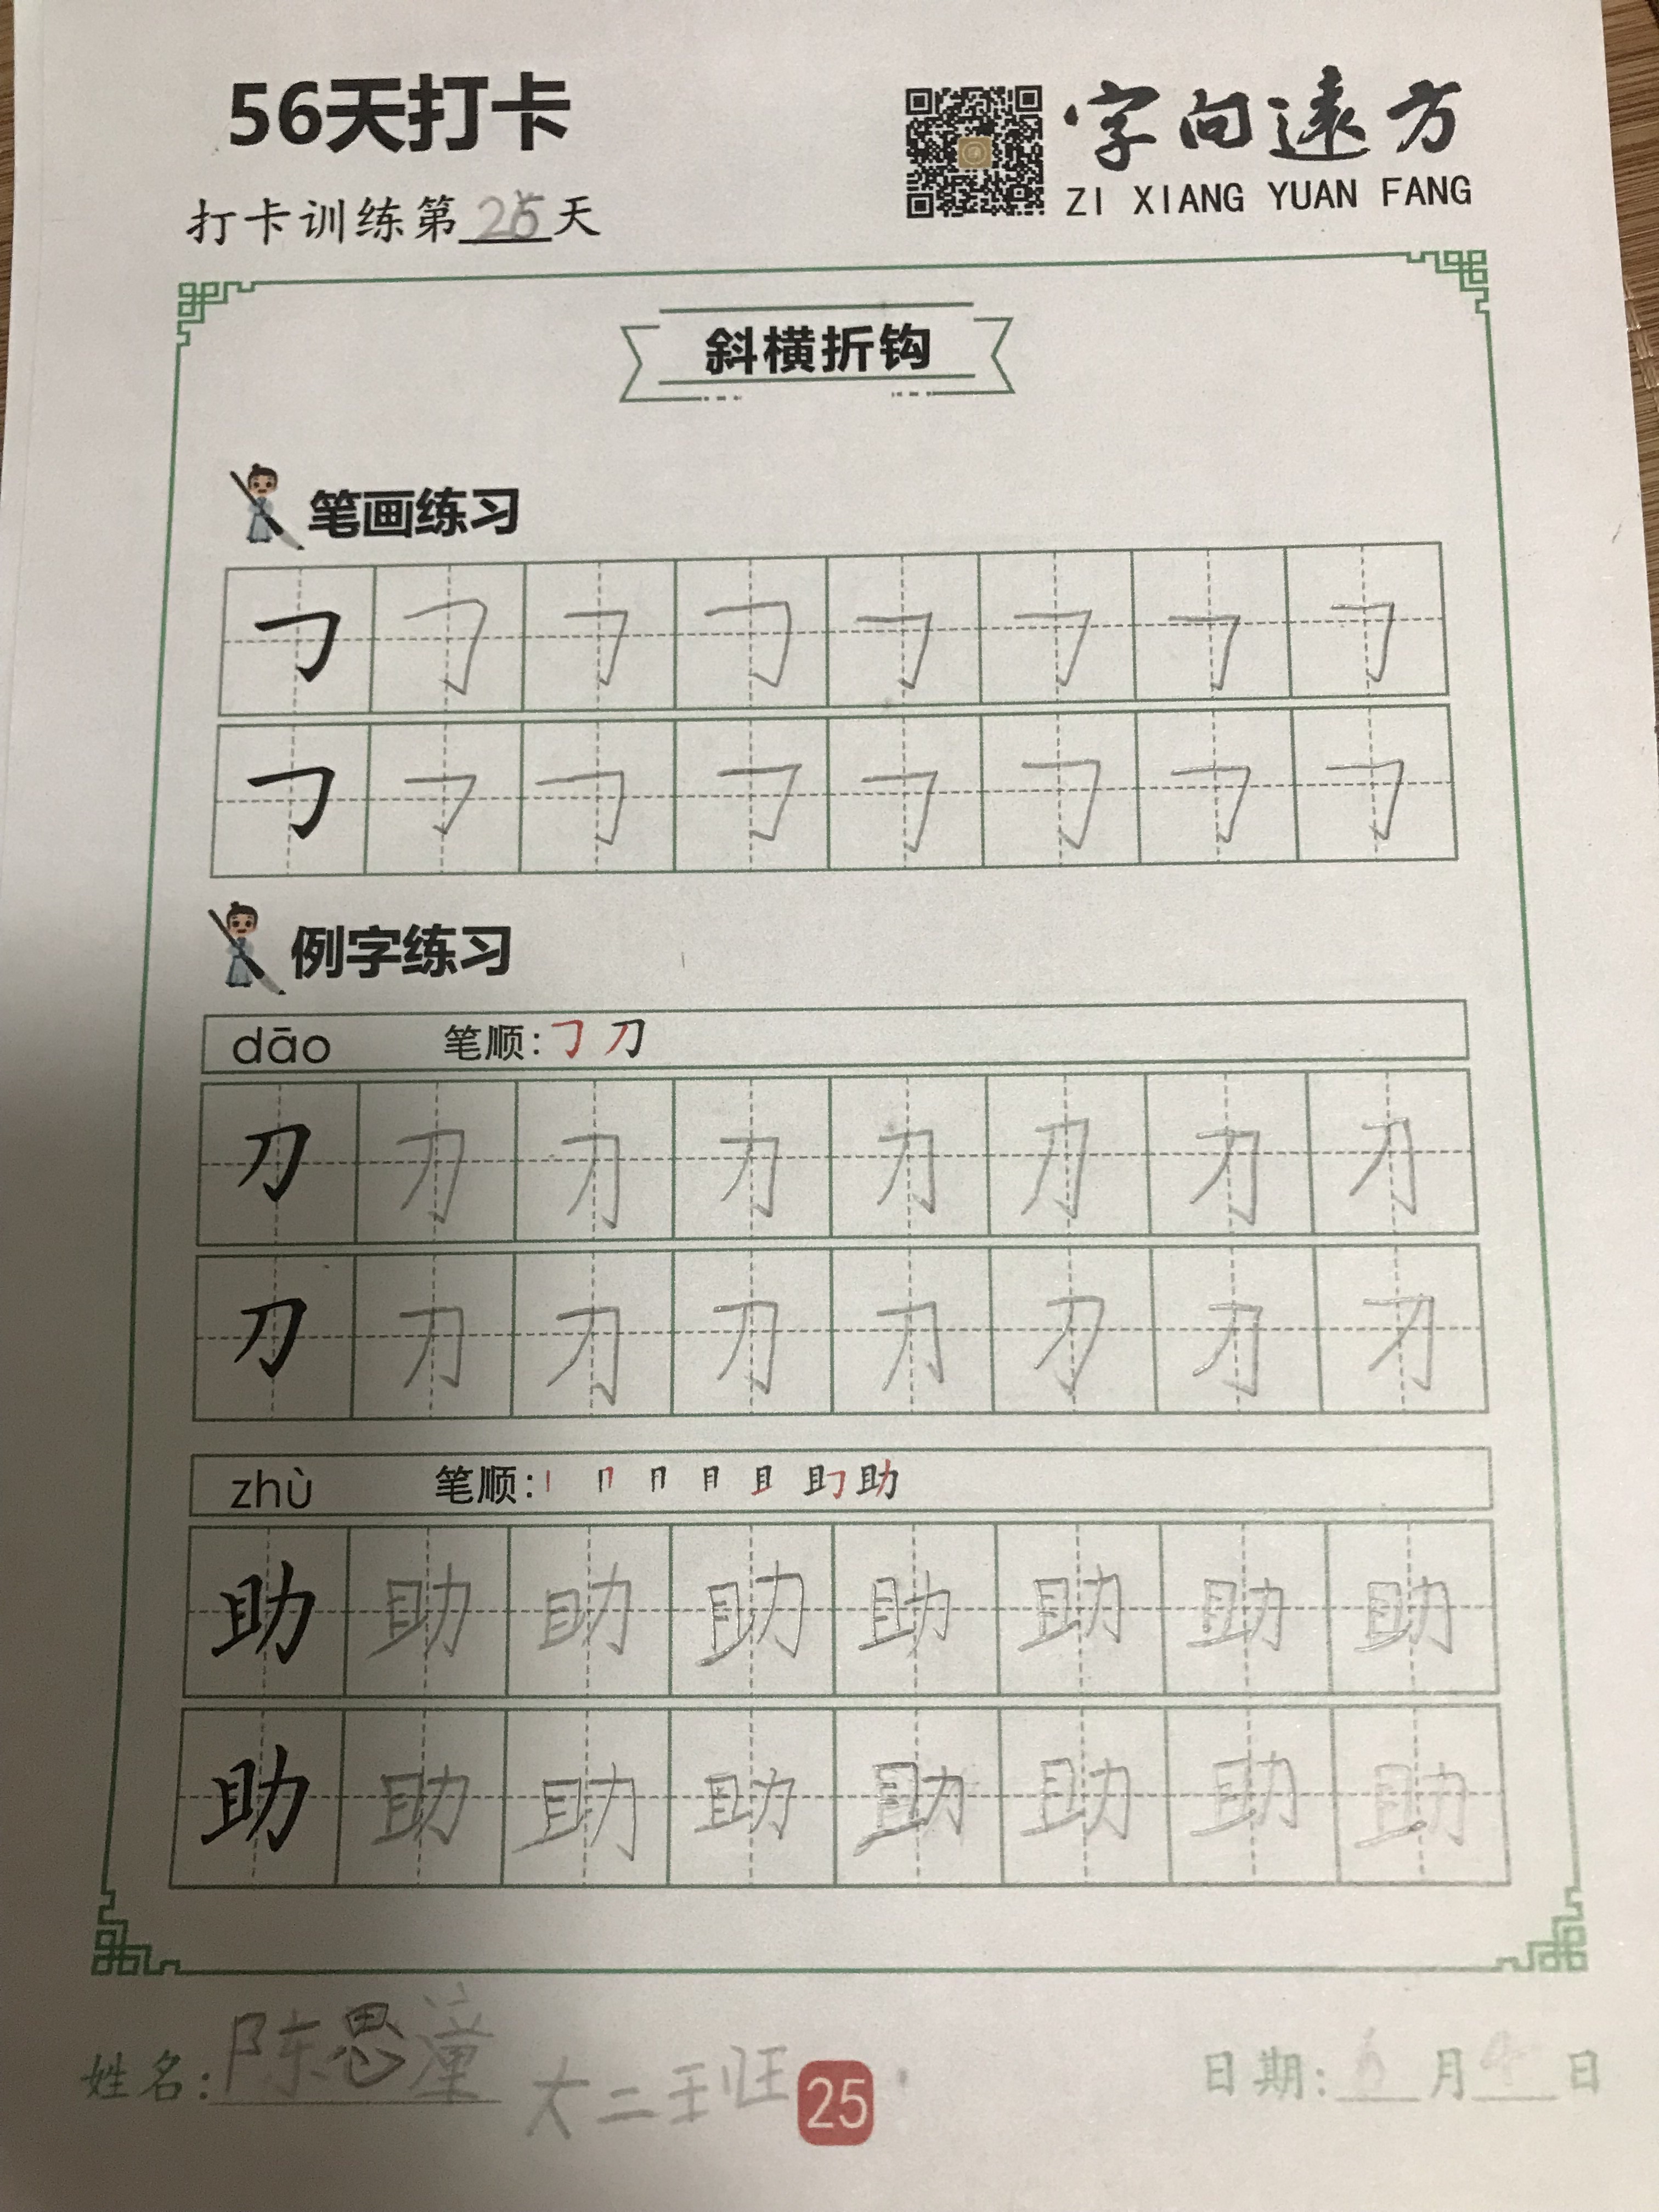 56天打卡
字向遠方
ZI XIANG YUAN FANG
打卡训练第25天
斜横折钩
笔画练习
㇆ ㇆ ㇆ ㇆ ㇆ ㇆ ㇆ ㇆
㇆ ㇆ ㇆ ㇆ ㇆ ㇆ ㇆ ㇆
例字练习
dāo 笔顺:㇆ 刀
刀 刀 刀 刀 刀 刀 刀 刀
刀 刀 刀 刀 刀 刀 刀 刀
zhù 笔顺:丨 冂 月 目 且 助
助 助 助 助 助 助 助 助
助 助 助 助 助 助 助 助
姓名:陈思潼 大二班 25 日期:6月 日